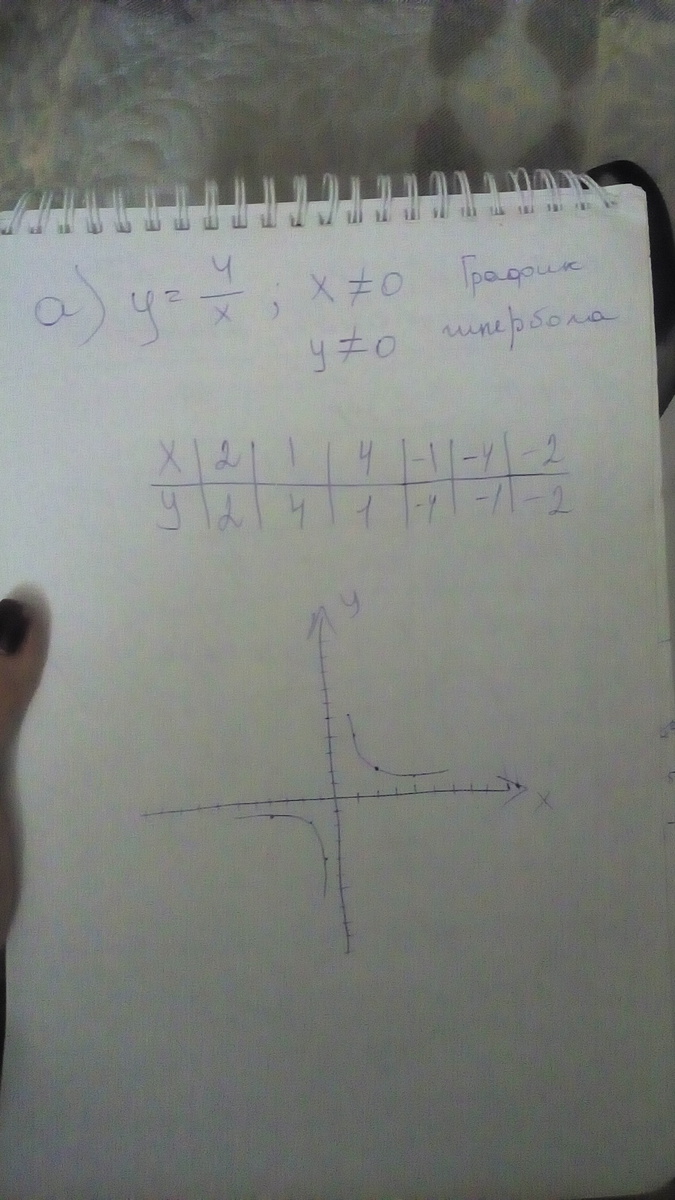 а) y = 4/x ; x ≠ 0 График
y ≠ 0 гипербола
x | 2 | 1 | 4 | -1 | -4 | -2
y | 2 | 4 | 1 | -4 | -1 | -2
y
x